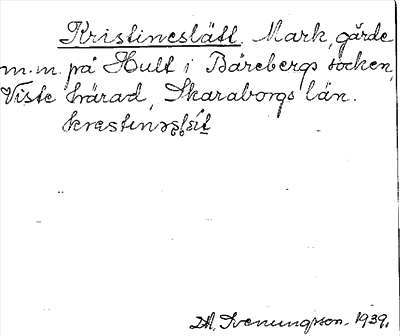 Kristineslätt. Mark, gärde
m.m. på Hult i Bärebergs socken,
Viste härad, Skaraborgs län.
D.A. Svenungsson. 1939.